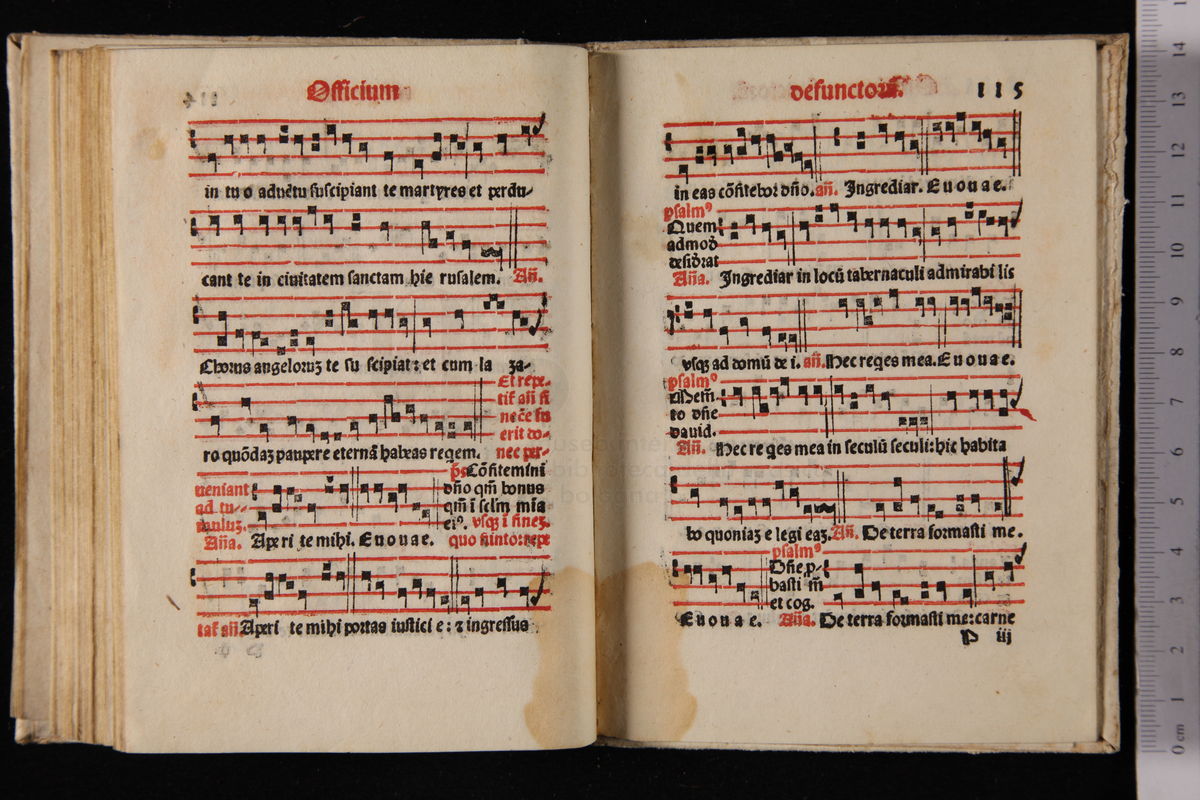 Officium
in tuo aduẽtu suscipiant te martyres et perdu-
cant te in ciuitatem sanctam hie rusalem. Añ.
Chorus angeloruȝ te su scipiat: et cum la za-
Et repe-
tit̃ añ si
necẽ fu
erit do-
ro quõdaȝ paupere eternã habeas reqem. nec per-
ueniant
ad tu-
muluȝ.
p̃s Cõfitemini
dño qm̃ bonus
qm̃ i sclm̃ mia
eiꝰ. vsqȝ i fineȝ.
Aña. Aperi te mihi. Euouae. quo finito: repe
tat̃ añ Aperi te mihi portas iustici e: ⁊ ingressus
defunctoꝝ. 115
in eas cõfitebor dño. añ. Ingrediar. Euouae.
psalmꝰ
Quem
admoď
desiďrat
Aña. Ingrediar in locũ tabernaculi admirabi lis
vsqȝ ad domũ de i. añ. Hec reqes mea. Euouae.
psalmꝰ
Mem̃
to dñe
dauid.
Añ. Hec re qes mea in seculũ seculi: hic habita
bo quoniaȝ e legi eaȝ. Añ. De terra formasti me.
psalmꝰ
Dñe, p-
basti m̃
et cog.
Euouae. Aña. De terra formasti me: carne
P iij
0 cm 1 2 3 4 5 6 7 8 9 10 11 12 13 14